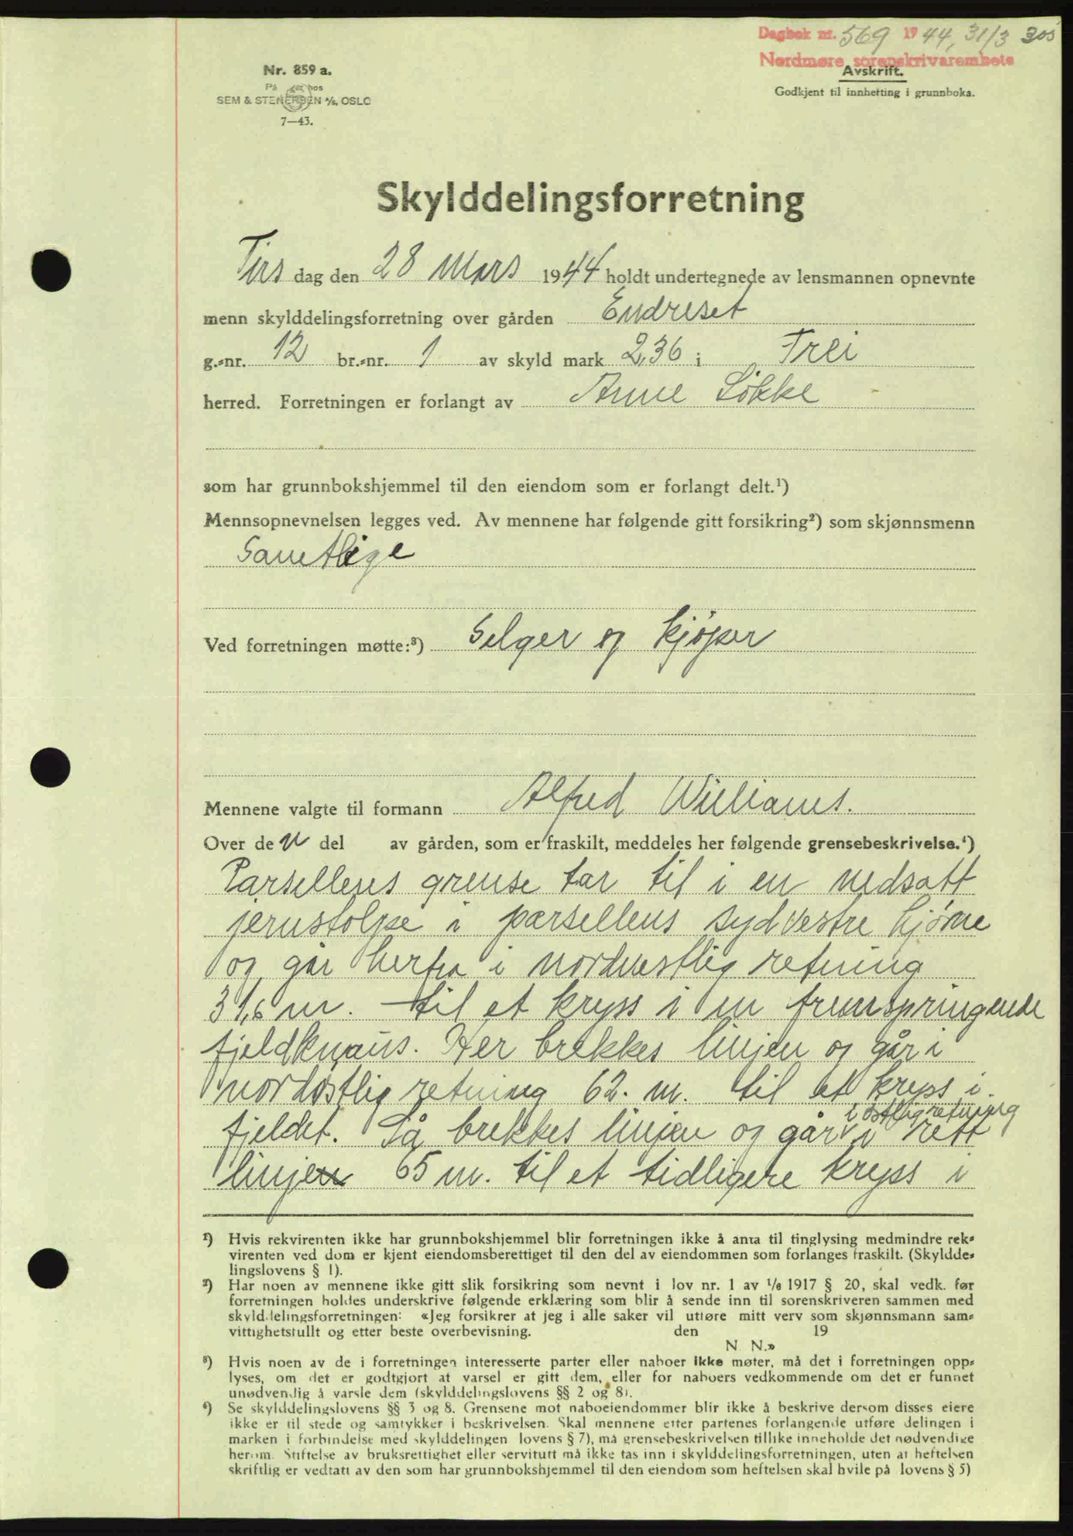 Dagbok nr. 569 1944, 31/3 305
Nordmøre sorenskrivarembete
Nr. 859 a.
På hos
SEM & STENERSEN A/S, OSLO
7—43.
Avskrift.
Godkjent til innhefting i grunnboka.
Skylddelingsforretning
Tirs dag den 28 Mars 1944 holdt undertegnede av lensmannen opnevnte
menn skylddelingsforretning over gården Endreset
g.-nr. 12 br.-nr. 1 av skyld mark 2,36 i Frei
herred. Forretningen er forlangt av Anne Løkke
som har grunnbokshjemmel til den eiendom som er forlangt delt.¹)
Mennsopnevnelsen legges ved. Av mennene har følgende gitt forsikring²) som skjønnsmenn
Samtlige
Ved forretningen møtte:³) Selger og kjøper
Mennene valgte til formann Alfred Williams.
Over de n del av gården, som er fraskilt, meddeles her følgende grensebeskrivelse.⁴)
Parsellens grense tar til i en nedsatt
jernstolpe i parsellens sydvestre hjørne
og går herfra i nordvestlig retning
31,6 m. til et kryss i en fremspringende
fjeldknaus. Her brekkes linjen og går i
nordøstlig retning 62. m. til et kryss i
fjeldet. Så brekkes linjen og går i østlig retning i rett
linjen 65 m. til et tidligere kryss i
¹) Hvis rekvirenten ikke har grunnbokshjemmel blir forretningen ikke å anta til tinglysing medmindre rek-
virenten ved dom er kjent eiendomsberettiget til den del av eiendommen som forlanges fraskilt. (Skyldde-
lingslovens § 1).
²) Har noen av mennene ikke gitt slik forsikring som nevnt i lov nr. 1 av 1/6 1917 § 20, skal vedk. før
forretningen holdes underskrive følgende erklæring som blir å sende inn til sorenskriveren sammen med
skylddelingsforretningen: «Jeg forsikrer at jeg i alle saker vil utføre mitt verv som skjønnsmann sam-
vittighetsfullt og etter beste overbevisning. den 19
N. N.»
³) Hvis noen av de i forretningen interesserte parter eller naboer ikke møter, må det i forretningen opp-
lyses, om det er godtgjort at varsel er gitt dem, eller for naboers vedkommende om det er funnet
unødvendig å varsle dem (skylddelingslovens §§ 2 og 8).
⁴) Se skylddelingslovens §§ 3 og 8. Grensene mot naboeiendommer blir ikke å beskrive dersom disses eiere
ikke er til stede og samtykker i beskrivelsen. Skal mennene etter partenes forlangende utføre delingen i
marken i forbindelse med skylddelingen lovens § 7), må grensebeskrivelsen tillike inneholde det nødvendige
herom. Stiftelse av bruksrettighet eller servitutt må ikke tas inn i skylddelingsforretningen, uten at heftelsen
skriftlig er vedtatt av den som har grunnbokshjemmel til den eiendom som heftelsen skal hvile på lovens § 5)